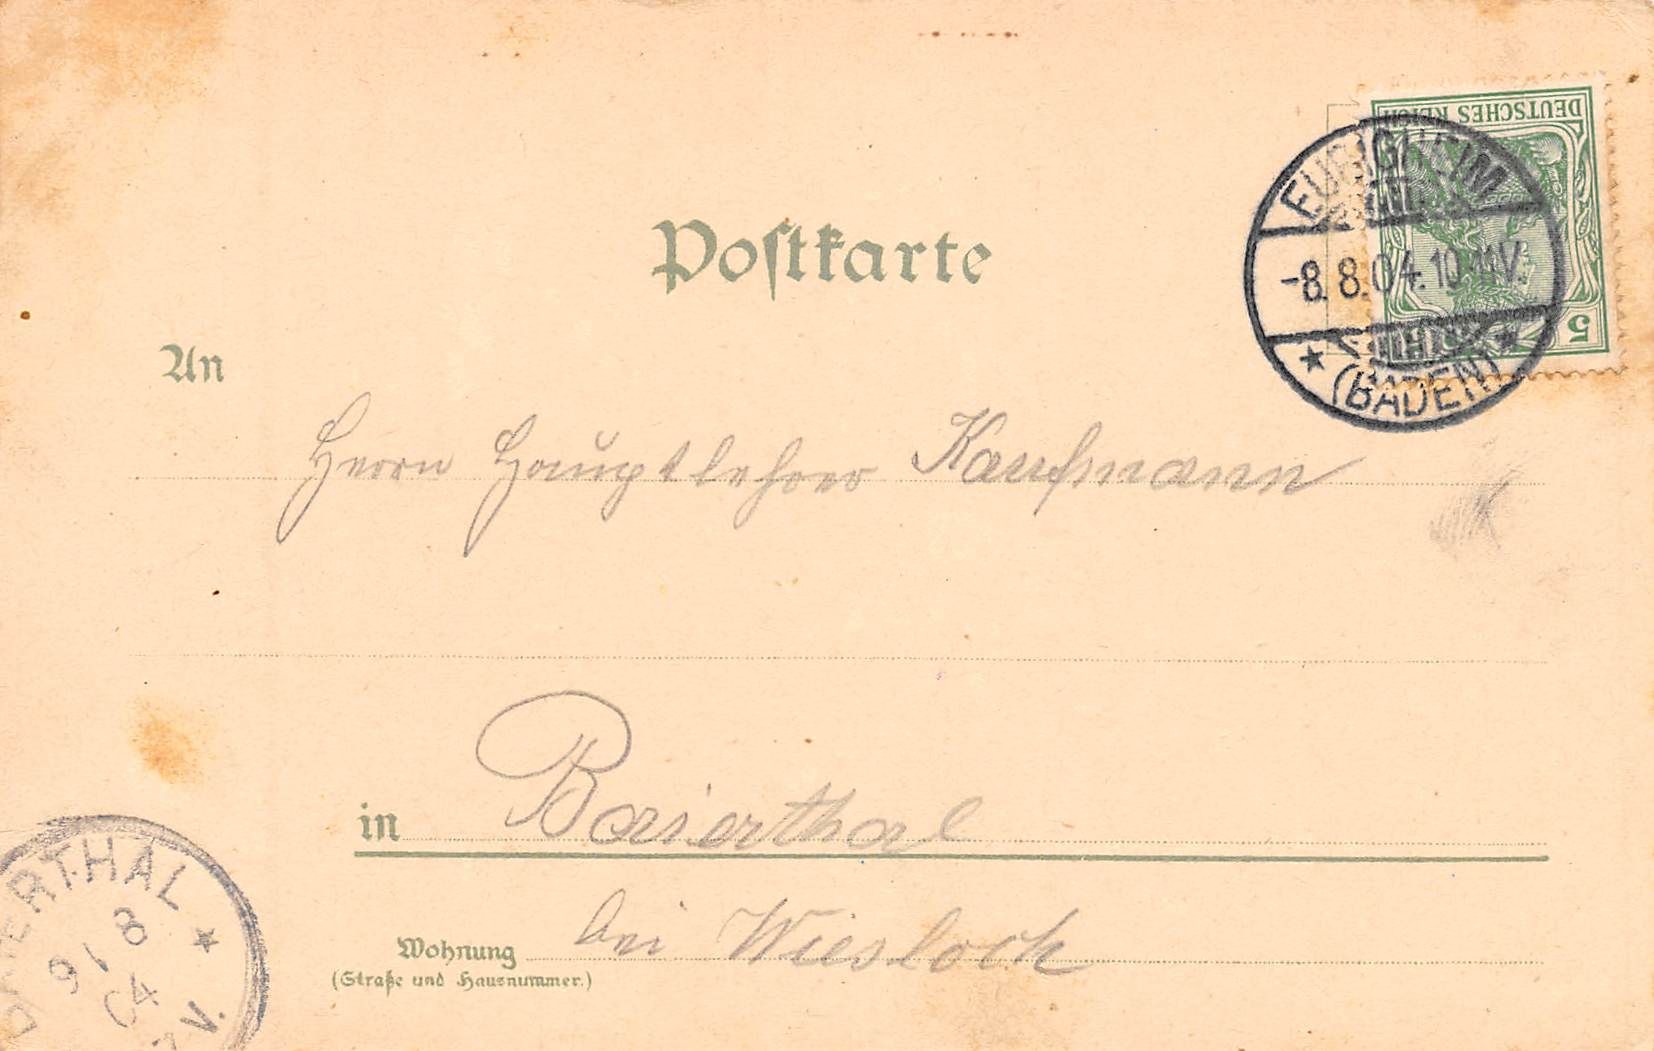 DEUTSCHES REICH
5
EUBIGHEIM
-8.8.04.10-11V.
(BADEN)
Postkarte
An
Herrn Hauptlehrer Kaufmann
in Baierthal
Wohnung bei Wiesloch
(Straße und Hausnummer.)
BAIERTHAL
9 8
04
V.